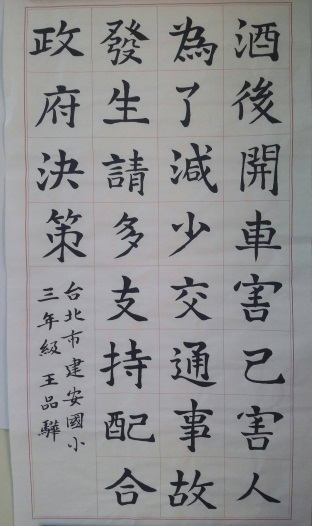 酒後開車害己害人
為了減少交通事故
發生請多支持配合
政府決策
台北市建安國小
三年級王品驊